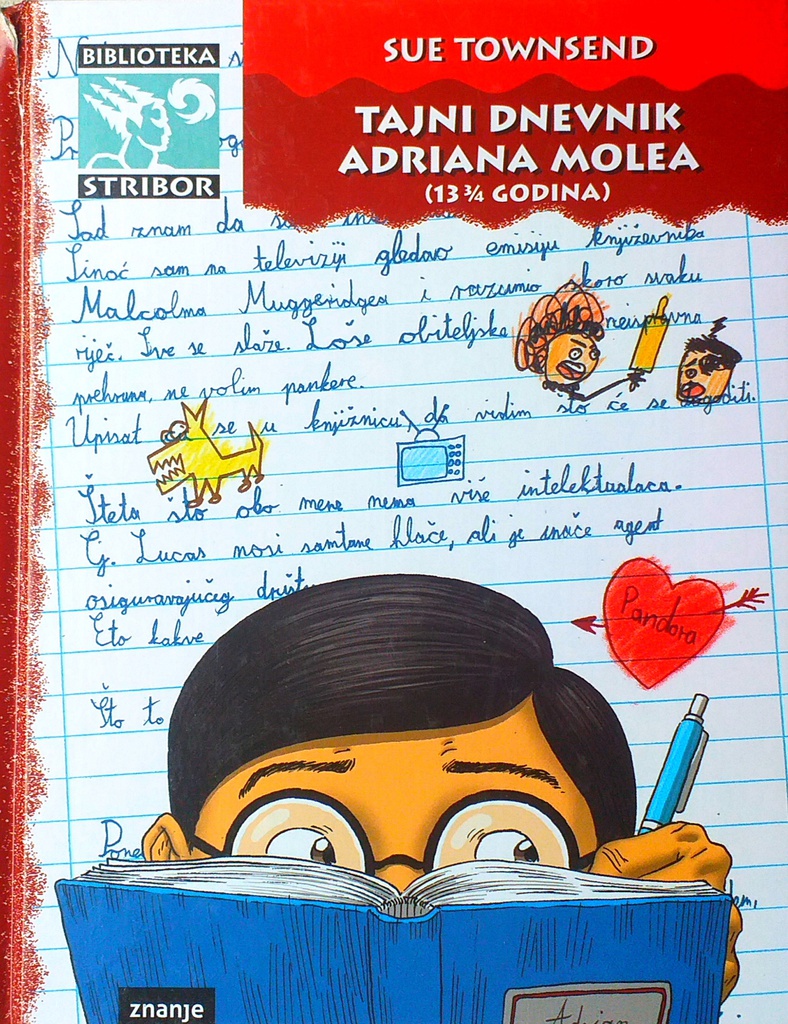 BIBLIOTEKA
STRIBOR
SUE TOWNSEND
TAJNI DNEVNIK
ADRIANA MOLEA
(13 ¾ GODINA)
Sad znam da
Sinoć sam na televiziji gledao emisiju književnika
Malcolma Muggeridgea i razumio skoro svaku
riječ. Sve se slaže. Loše obiteljske neispravna
prehrana, ne volim pankere.
Upisat ću se u knjižnicu, da vidim što će se dogoditi.
Šteta što oko mene nema više intelektualaca.
G. Lucas nosi samtane hlače, ali je inače agent
osiguravajućeg društv
Eto kakve
Pandora
Što to
znanje
Adrian